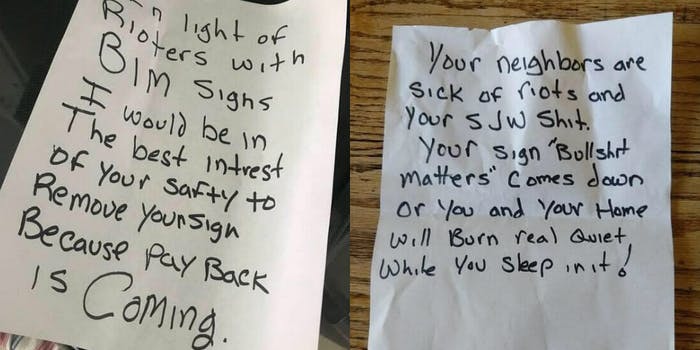 In light of
Rioters with
BlM Signs
It would be in
The best intrest
of Your safty to
Remove Yoursign
Because pay Back
is Coming.
Your neighbors are
sick of riots and
Your SJW Shit.
Your Sign "Bullshrt
matters" Comes down
Or You and Your Home
will Burn real Quiet
While You Sleep in it!